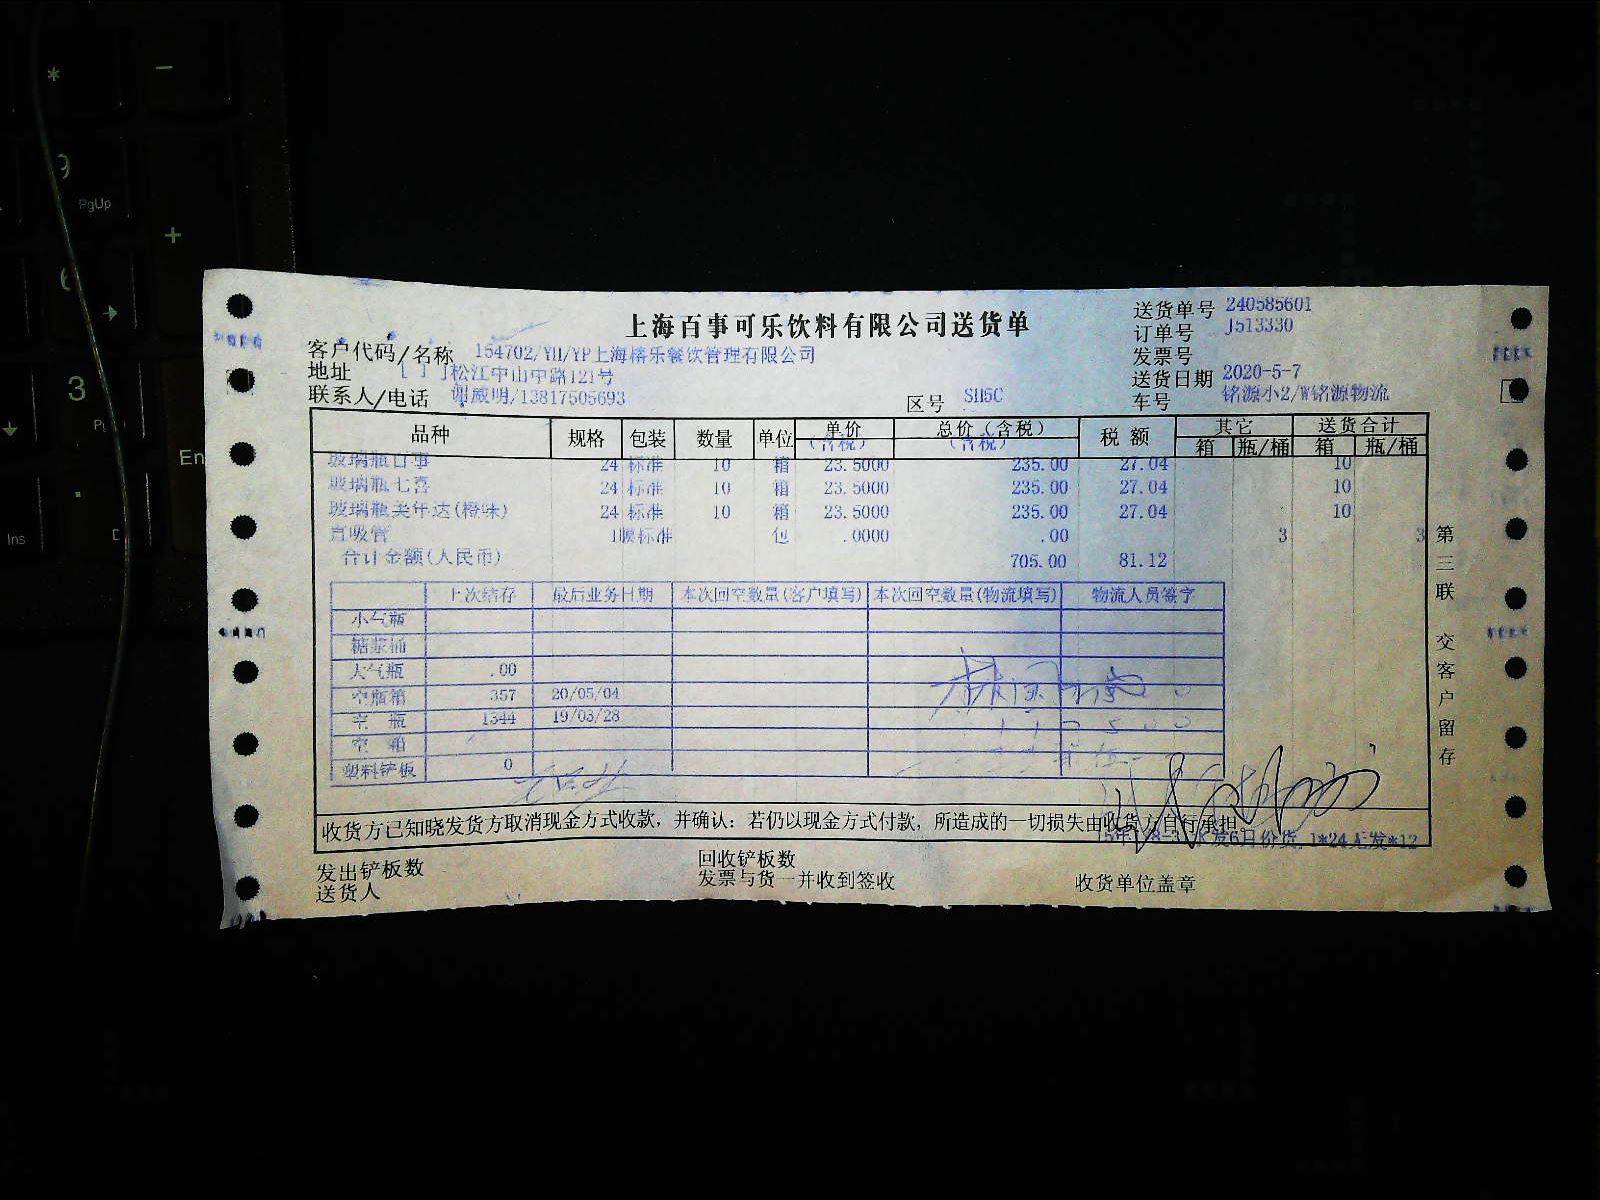 * -
9
PgUp
+
6
3
En
Ins
上海百事可乐饮料有限公司送货单
送货单号 240585601
订单号 J513330
发票号
送货日期 2020-5-7
车号 铭源小2/W铭源物流
客户代码/名称 154702/YH/YP上海榕乐餐饮管理有限公司
地址 [ ] ]松江中山中路121号
联系人/电话 谢威明/13817505693
区号 SH5C
品种 规格 包装 数量 单位 单价(含税) 总价(含税) 税额 其它 送货合计
(含税) (含税) 箱 瓶/桶 箱 瓶/桶
玻璃瓶百事 24 标准 10 箱 23.5000 235.00 27.04 10
玻璃瓶七喜 24 标准 10 箱 23.5000 235.00 27.04 10
玻璃瓶美年达(橙味) 24 标准 10 箱 23.5000 235.00 27.04 10
直吸管 标准 包 .0000 .00 3 3
合计金额(人民币) 705.00 81.12
上次结存 最后业务日期 本次回空数量(客户填写) 本次回空数量(物流填写) 物流人员签字
小气瓶
糖浆桶
大气瓶 .00
空瓶箱 357 20/05/04
空 瓶 1344 19/03/28
空 箱
塑料铲板 0
收货方已知晓发货方取消现金方式收款，并确认：若仍以现金方式付款，所造成的一切损失由收货方自行承担。
发6日价货 1*24无发*12
发出铲板数 回收铲板数
送货人 发票与货一并收到签收 收货单位盖章
第三联 交客户留存